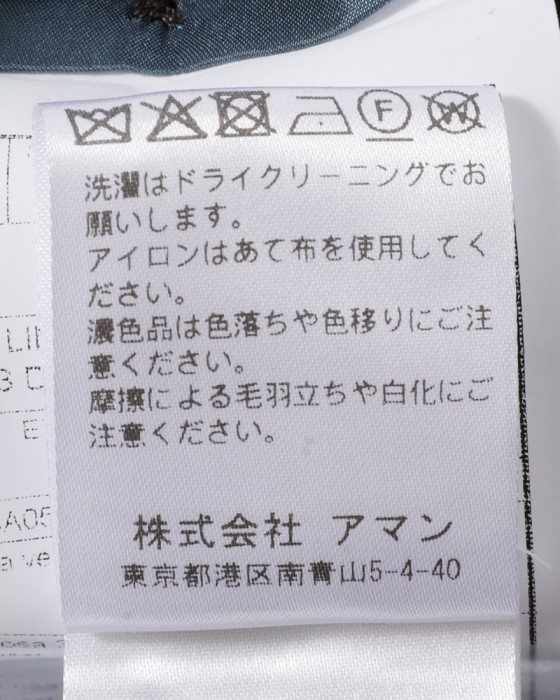 F
W
洗濯はドライクリーニングでお
願いします。
アイロンはあて布を使用してく
ださい。
濃色品は色落ちや色移りにご注
意ください。
摩擦による毛羽立ちや白化にご
注意ください。
株式会社 アマン
東京都港区南青山5-4-40